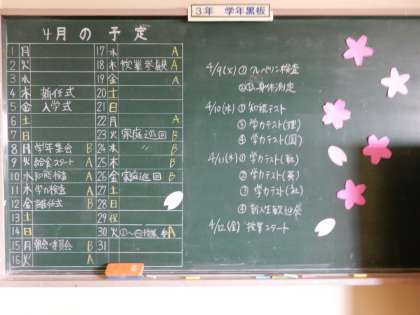 3年 学年黒板
4月の予定
1 月
2 火
3 水
4 木 新任式
5 金 入学式
6 土
7 日
8 月 学年集会 B
9 火 給食スタート A
10 水 知能検査 A
11 木 学力検査 A
12 金 離任式 B
13 土
14 日
15 月 B
16 火 A
17 水 A
18 木 授業参観 A
19 金 A
20 土
21 日
22 月 A
23 火 家庭巡回 B
24 水 〃 B
25 木 B
26 金 家庭巡回 B
27 土
28 日
29 祝
30 火 A
31
4/9(火) ① クレペリン検査
② 身体測定
4/10(水) ① 知能テスト
③ 学力テスト(理)
④ 学力テスト(国)
4/11(木) ① 学力テスト(数)
② 学力テスト(英)
③ 学力テスト(社)
④ 新入生歓迎会
4/12(金) 授業スタート